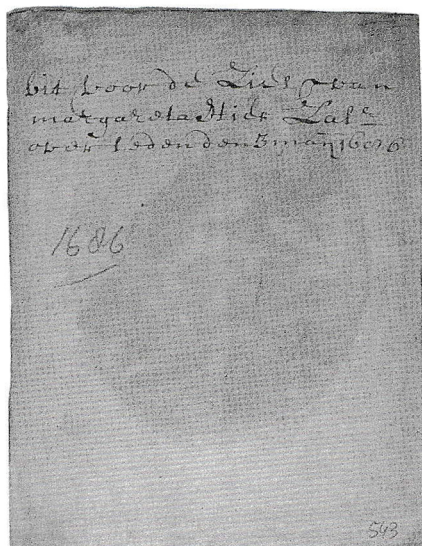 bit voor de Ziel van
margareta Zal:
overleden den 3 maÿ 1686
1686
543